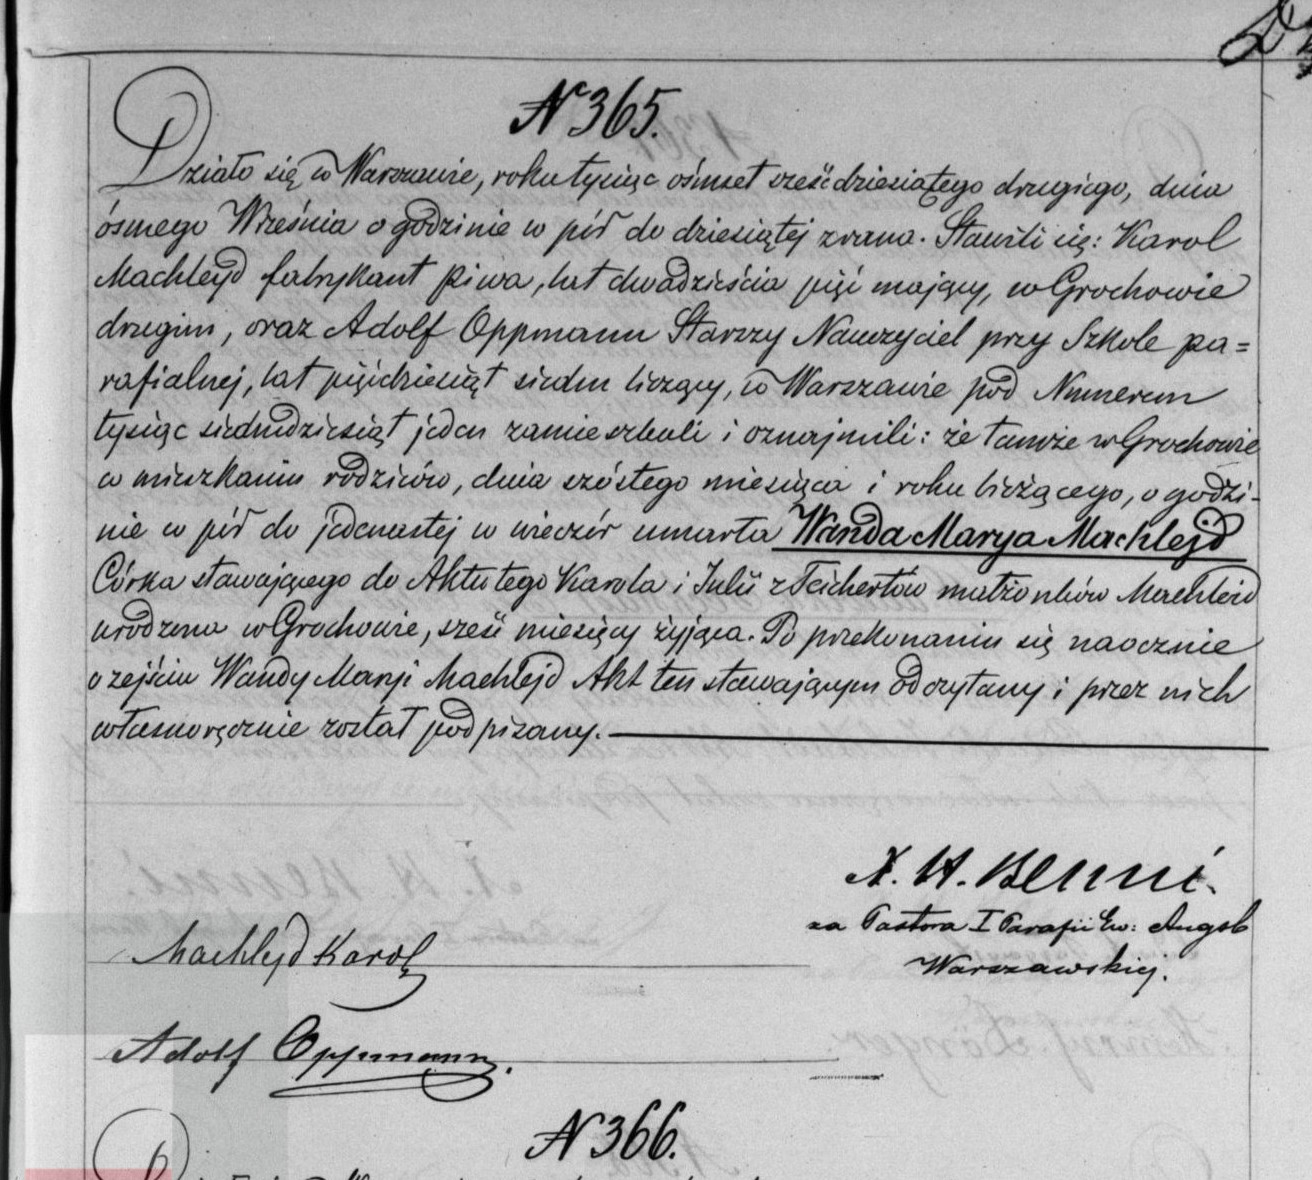 N 365.
Działo się w Warszawie, roku tysiąc ośmset sześćdziesiątego drugiego, dnia
ósmego Września o godzinie w pół do dziesiątej zrana. Stawili się: Karol
Machlejd fabrykant piwa, lat dwadzieścia pięć mający, w Grochowie
drugim, oraz Adolf Oppmann Starszy Nauczyciel przy Szkole pa=
rafialnej, lat pięćdziesiąt siedm liczący, w Warszawie pod Numerem
tysiąc siedmdziesiąt jeden zamieszkali i oznajmili: że tamże w Grochowie
w mieszkaniu rodziców, dnia szóstego miesiąca i roku bieżącego, o godzi-
nie w pół do jedenastej w wieczór umarła Wanda Marya Machlejd
Córka stawającego do Aktu tego Karola i Julii z Teichertów małżonków Machlejd
urodzona w Grochowie, sześć miesięcy żyjąca. Po przekonaniu się naocznie
o zejściu Wandy Maryi Machlejd Akt ten stawającym odczytany i przez nich
własnoręcznie został podpisany.
X. H. Benni.
za Pastora I Parafii Ew: Augsb
Warszawskiej.
Machlejd Karol
Adolf Oppmann.
N 366.